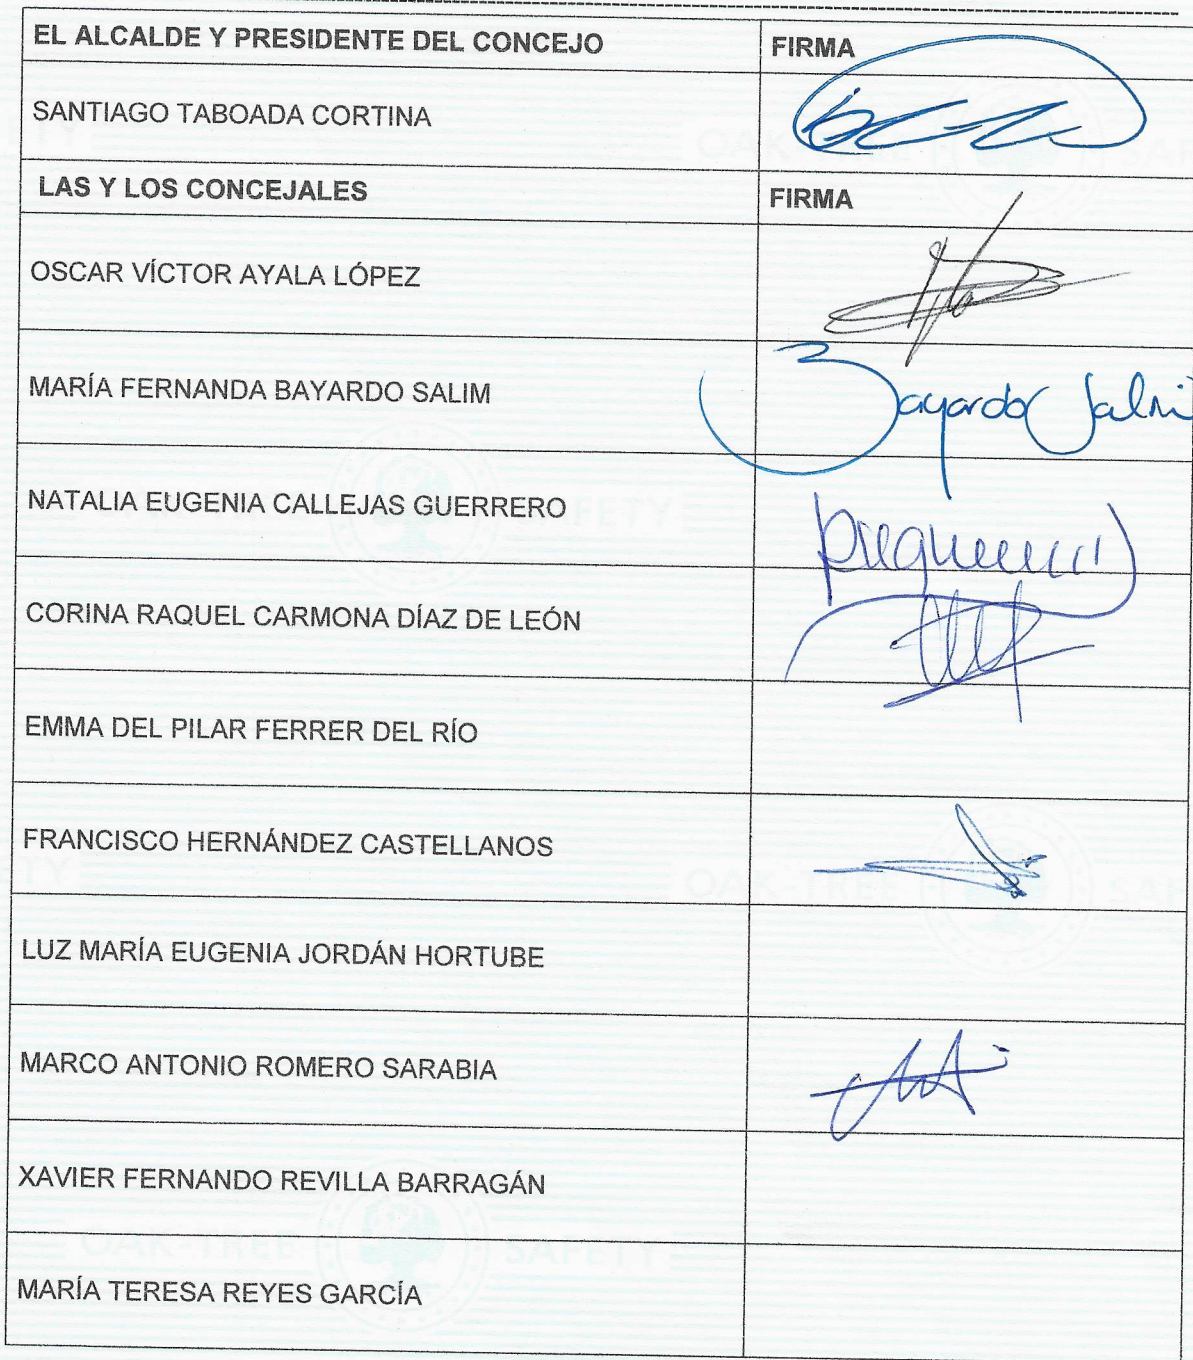 EL ALCALDE Y PRESIDENTE DEL CONCEJO FIRMA
SANTIAGO TABOADA CORTINA
LAS Y LOS CONCEJALES FIRMA
OSCAR VÍCTOR AYALA LÓPEZ
MARÍA FERNANDA BAYARDO SALIM Bayardo Salim
NATALIA EUGENIA CALLEJAS GUERRERO
SAFETY
CORINA RAQUEL CARMONA DÍAZ DE LEÓN
EMMA DEL PILAR FERRER DEL RÍO
FRANCISCO HERNÁNDEZ CASTELLANOS
OAK-TREE
LUZ MARÍA EUGENIA JORDÁN HORTUBE
MARCO ANTONIO ROMERO SARABIA
XAVIER FERNANDO REVILLA BARRAGÁN
OAK-TREE SAFETY
MARÍA TERESA REYES GARCÍA